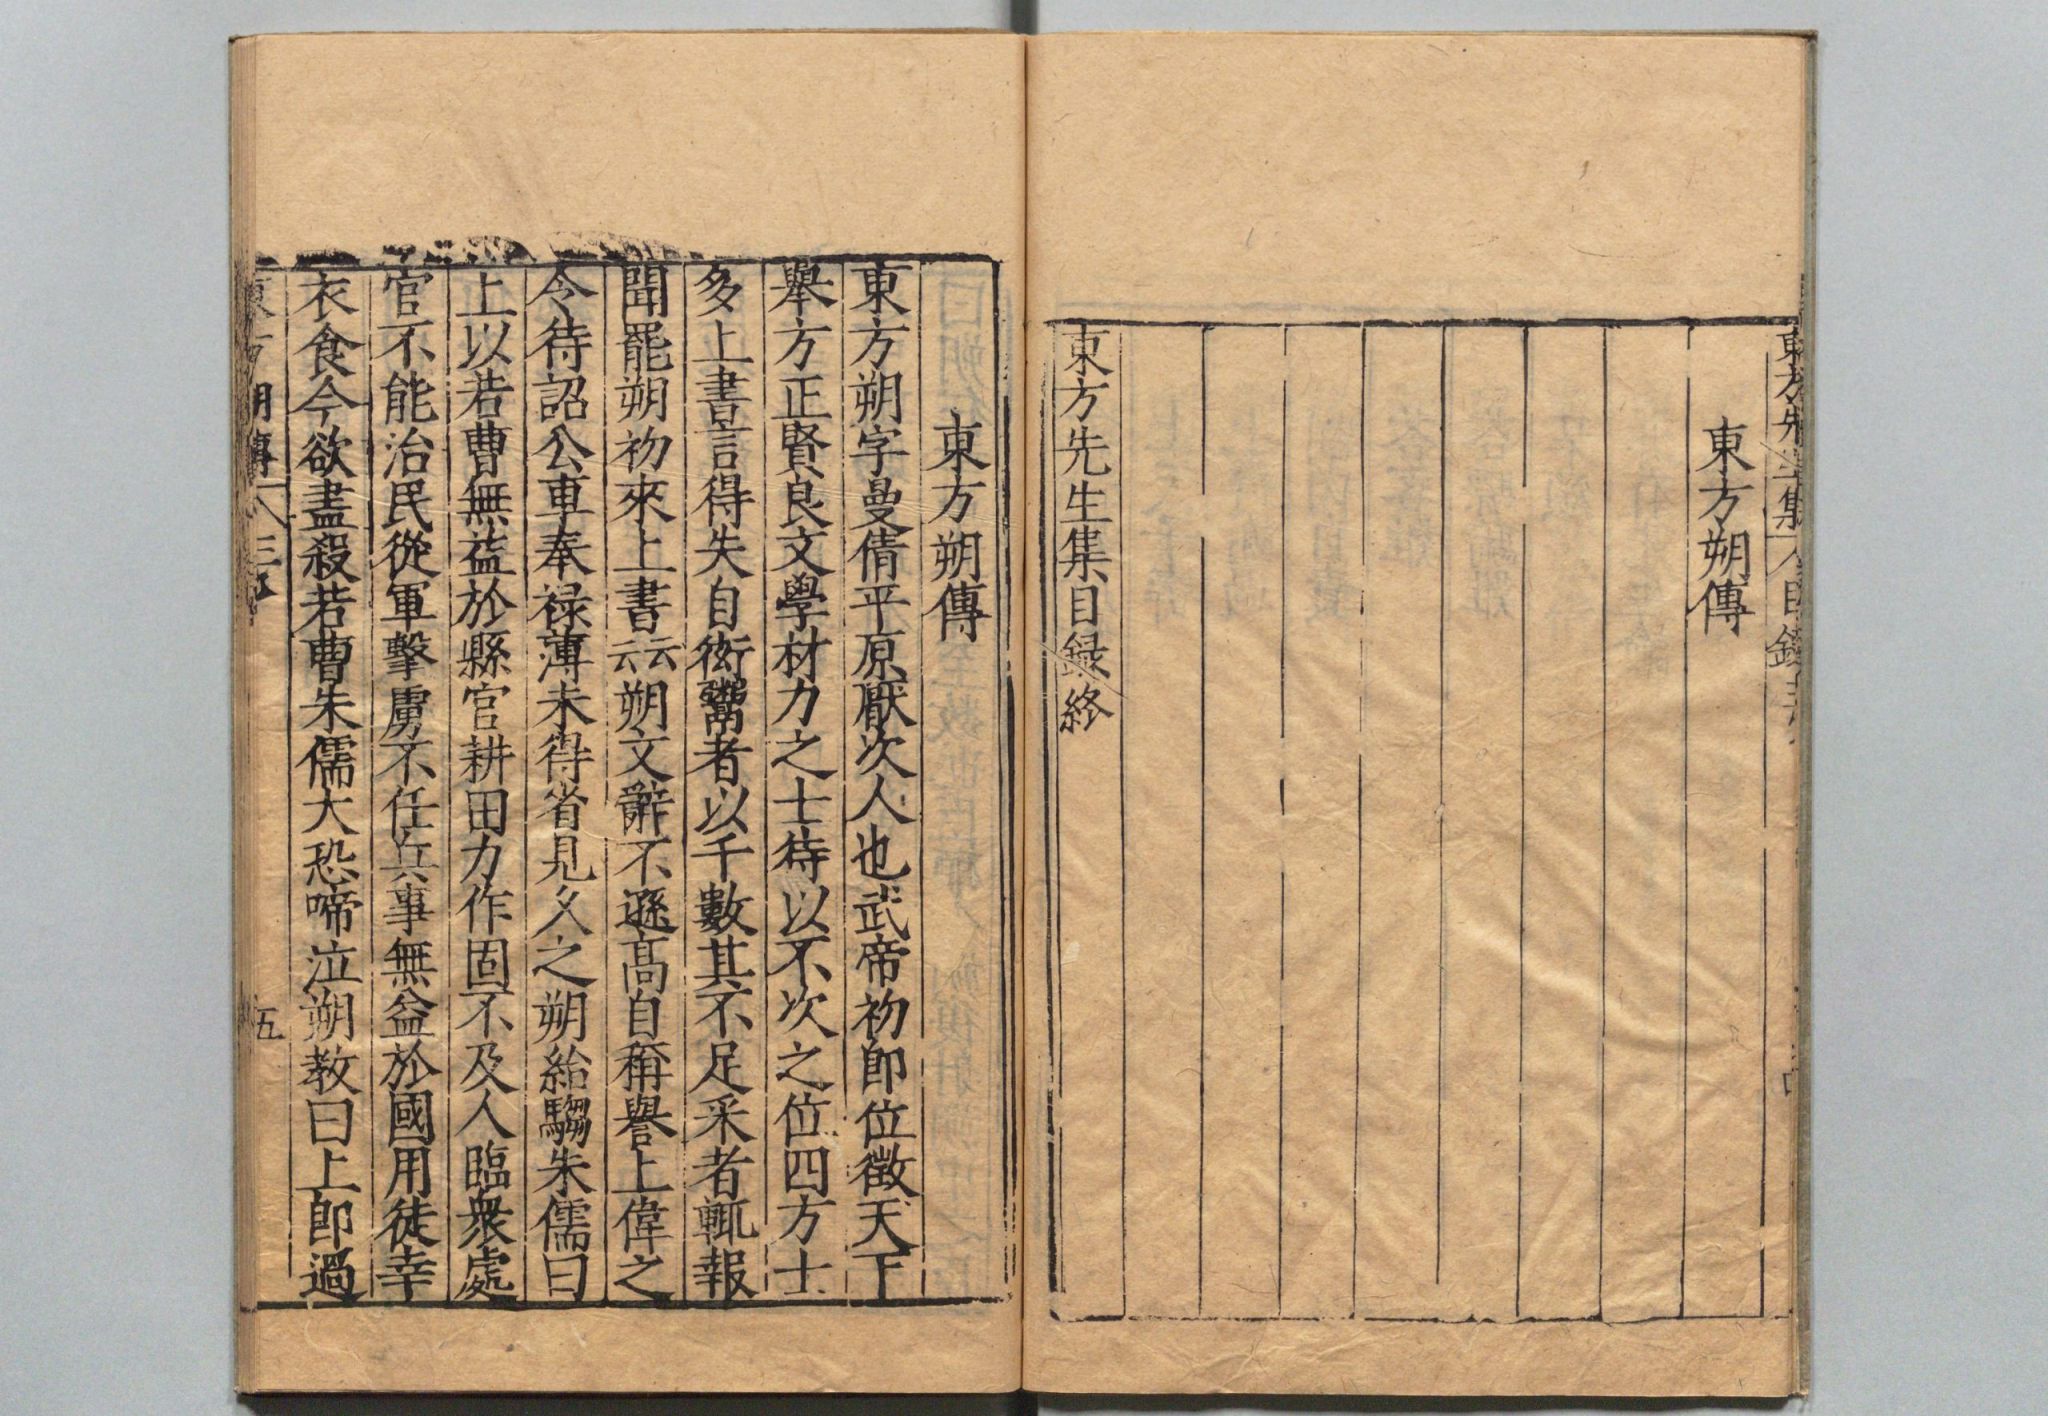 東方先生集
東方朔傳
東方先生集目録終
東方朔傳
東方朔字曼倩平原厭次人也武帝初即位徵天下
舉方正賢良文學材力之士待以不次之位四方士
多上書言得失自衒鬻者以千數其不足采者輒報
聞罷朔初來上書云云朔文辭不遜高自稱譽上偉之
令待詔公車奉祿薄未得省見久之朔紿騶朱儒曰
上以若曹無益於縣官耕田力作固不及人臨衆處
官不能治民從軍擊虜不任兵事無益於國用徒幸
衣食今欲盡殺若曹朱儒大恐啼泣朔教曰上即過
東方朔傳
五